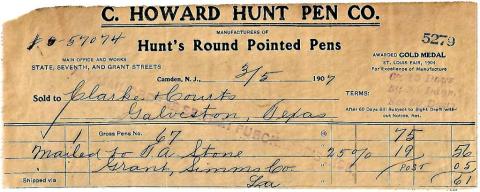 C. HOWARD HUNT PEN CO.
MANUFACTURERS OF
Hunt's Round Pointed Pens
5279
57074
MAIN OFFICE AND WORKS
STATE, SEVENTH, AND GRANT STREETS
AWARDED GOLD MEDAL
ST. LOUIS FAIR, 1904
For Excellence of Manufacture
Camden, N. J., 3/5 1907
Sold to Clarke & Courts
TERMS:
Galveston, Texas
After 60 Days Bill Subject to Sight Draft without Notice, Net.
1 Gross Pens No. 67 @ 75
Mailed to Stone 25% 19 56
Grant, Simms Co. Post 05
Shipped via La 61